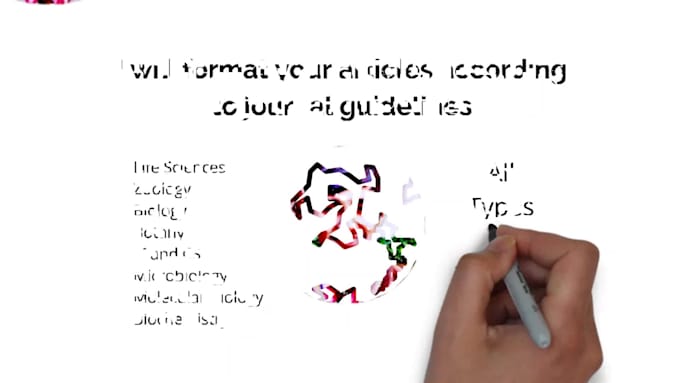 I will format your articles according
to journal guidelines
Life Sciences
Zoology
Biology
Botany
Genetics
Microbiology
Molecular Biology
Biochemistry
All
Types